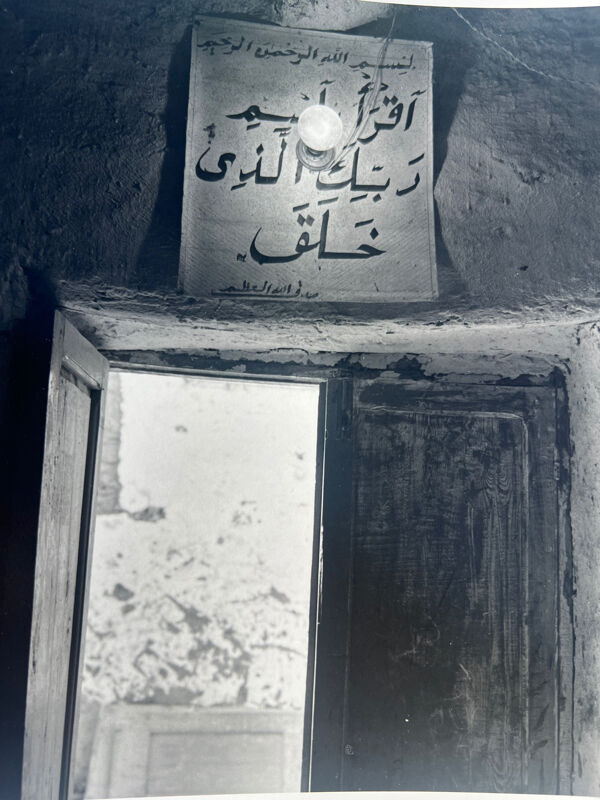 بِسْمِ اللهِ الرَّحْمٰنِ الرَّحِيمِ
اَقْرَأْ بِاسْمِ
رَبِّكَ الَّذِى
خَلَقَ
صدق الله العظيم